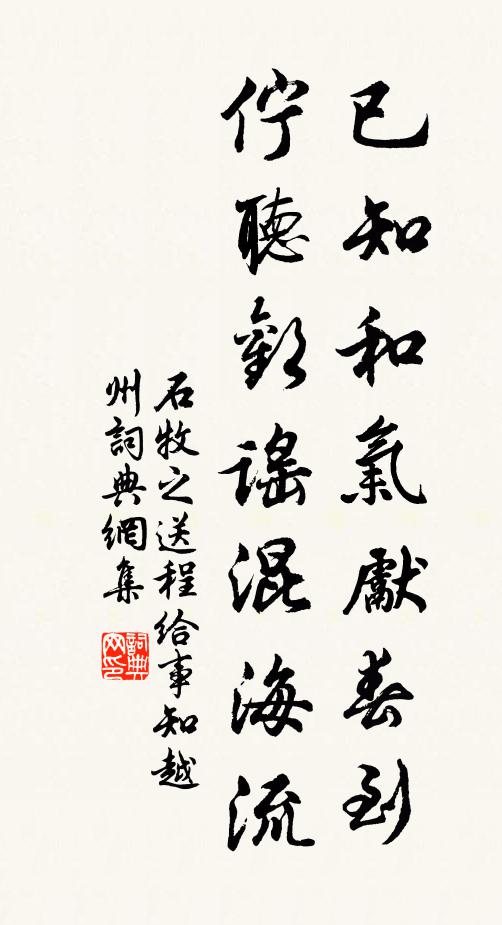 已知和氣獻春到
佇聽歡謡混海流
石牧之送程給事知越
州詞典網集
詞典网印